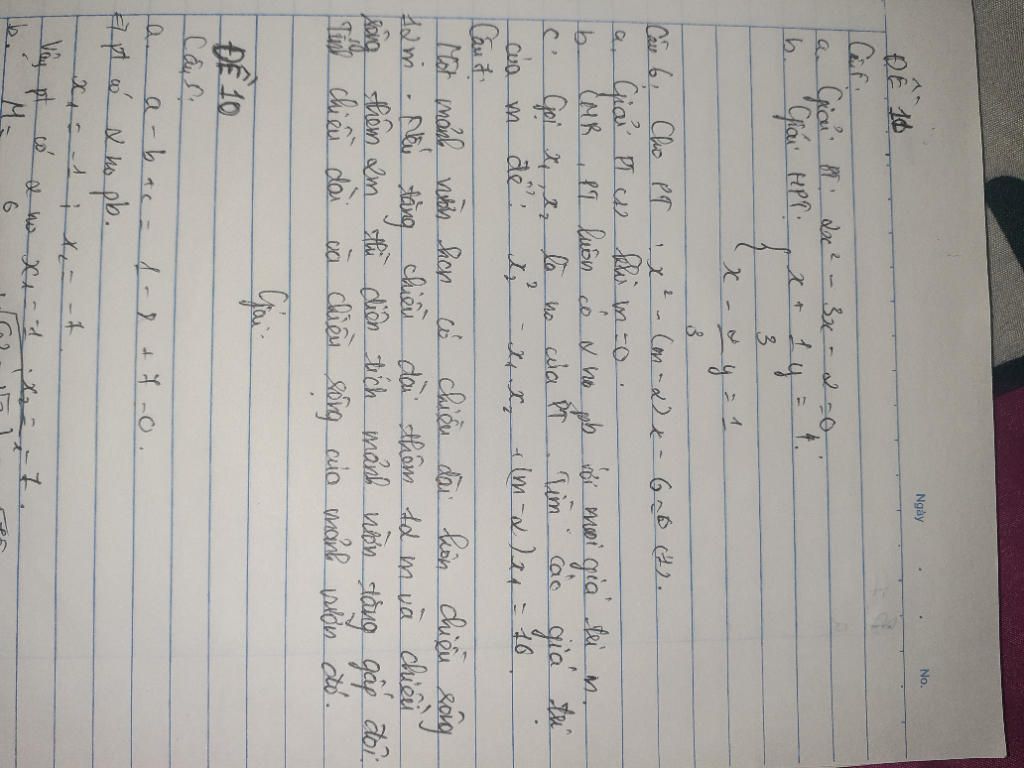 Ngày
No.
ĐỀ 10
Câu 5.
a. Giải PT: 2x² - 3x - 2 = 0
b. Giải HPT: { x + 1/3 y = 4
x - 2/3 y = 1
Câu 6, Cho PT: x² - (m-2)x - 6 = 0 (1).
a, Giải PT (1) khi m = 0.
b, CMR, PT luôn có 2 no pb với mọi giá trị m.
c. Gọi x₁, x₂ là no của PT. Tìm các giá trị
của m để: x₂² - x₁.x₂ + (m-2)x₁ = 16.
Câu 7.
Một mảnh vườn hcn có chiều dài hơn chiều rộng
12m. Nếu tăng chiều dài thêm 12m và chiều
rộng thêm 2m thì diện tích mảnh vườn tăng gấp đôi.
Tính chiều dài và chiều rộng của mảnh vườn đó.
Giải.
ĐỀ 10
Câu 5.
a. a - b + c = 1 - 8 + 7 = 0.
=> pt có 2 no pb.
x₁ = -1 ; x₂ = -7.
Vậy pt có 2 no x₁ = -1, x₂ = -7.
b. M =
6